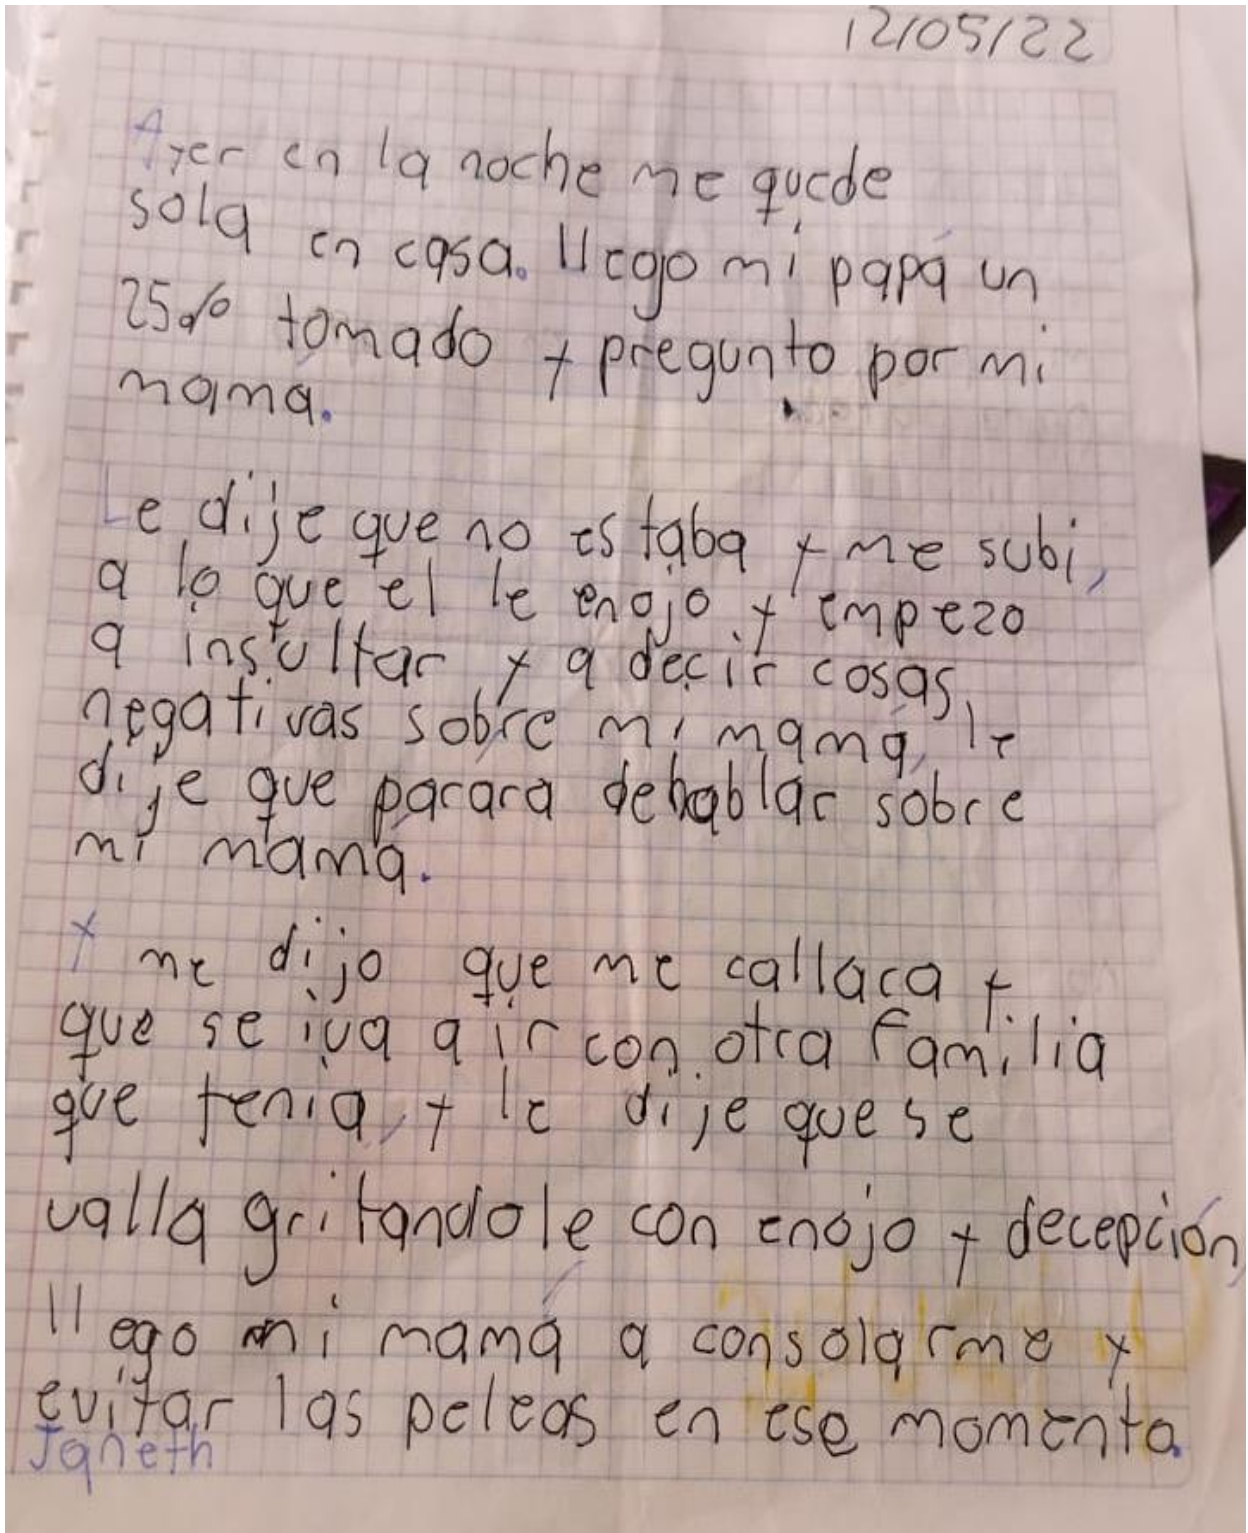 12/05/22
Ayer en la noche me quede
sola en casa. llego mi papá un
25% tomado y pregunto por mi
mama.
Le dije que no estaba y me subi,
a lo que el le enojo y empezo
a insultar y a decir cosas
negativas sobre mi mamá, le
dije que parara dehablar sobre
mi mamá.
Y me dijo que me callara y
que se iva a ir con otra familia
que tenia, y le dije que se
valla gritandole con enojo y decepción,
llego mi mamá a consolarme y
evitar las peleas en ese momento.
Janeth